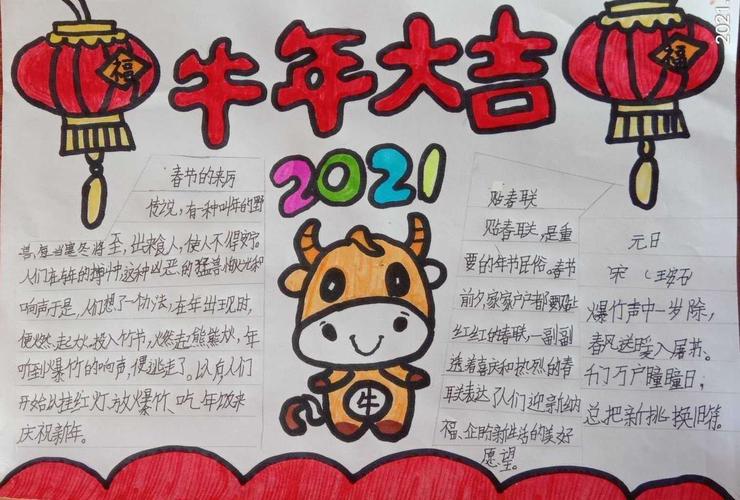 牛年大吉
福
福
2021.
2021
春节的来厉
传说,有一种叫年的野
兽,每当寒冬将至,出来食人,使人不得安。
人们在年的搏斗中,这种凶恶的猛兽怕火光和
响声于是,人们想了一个办法,在年出现时,
便燃起火,投入竹节,燃起熊熊火,年
听到爆竹的响声,便逃走了。以后人们
开始以挂红灯、放爆竹、吃年饭来
庆祝新年。
牛
贴春联
贴春联,是重
要的年节民俗。春节
前夕,家家户户都要贴上
红红的春联,一副副
透着喜庆和热烈的春
联表达了人们迎新纳
福、企盼新生活的美好
愿望。
元日
宋 (王安石
爆竹声中一岁除,
春风送暖入屠苏。
千门万户曈曈日,
总把新桃换旧符。